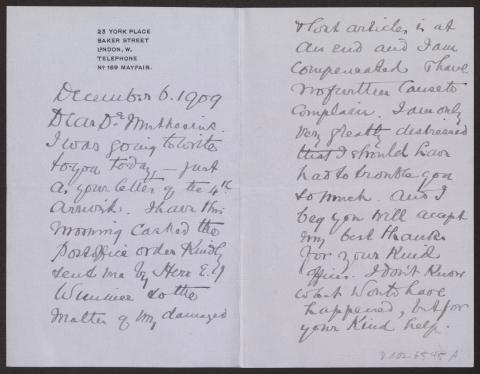 23 YORK PLACE
BAKER STREET
LONDON, W.
TELEPHONE
No 169 MAYFAIR.
December 6. 1909
Dear Dr
I was going to write
to you today – just
as your letter of the 4th
arrived. I have this
morning cashed the
Post office order kindly
send me by Here E. v
so the
matter of my damaged
& lost articles is at
an end and I am
compensated & have
no further cause to
complain. I am only
very greatly distressed
that I should have
had to trouble you
so much. And I
beg you will accept
my best thanks
for your kind
offices. I don't know
what would have
happened, but for
your kind help.
D 102-6545 A